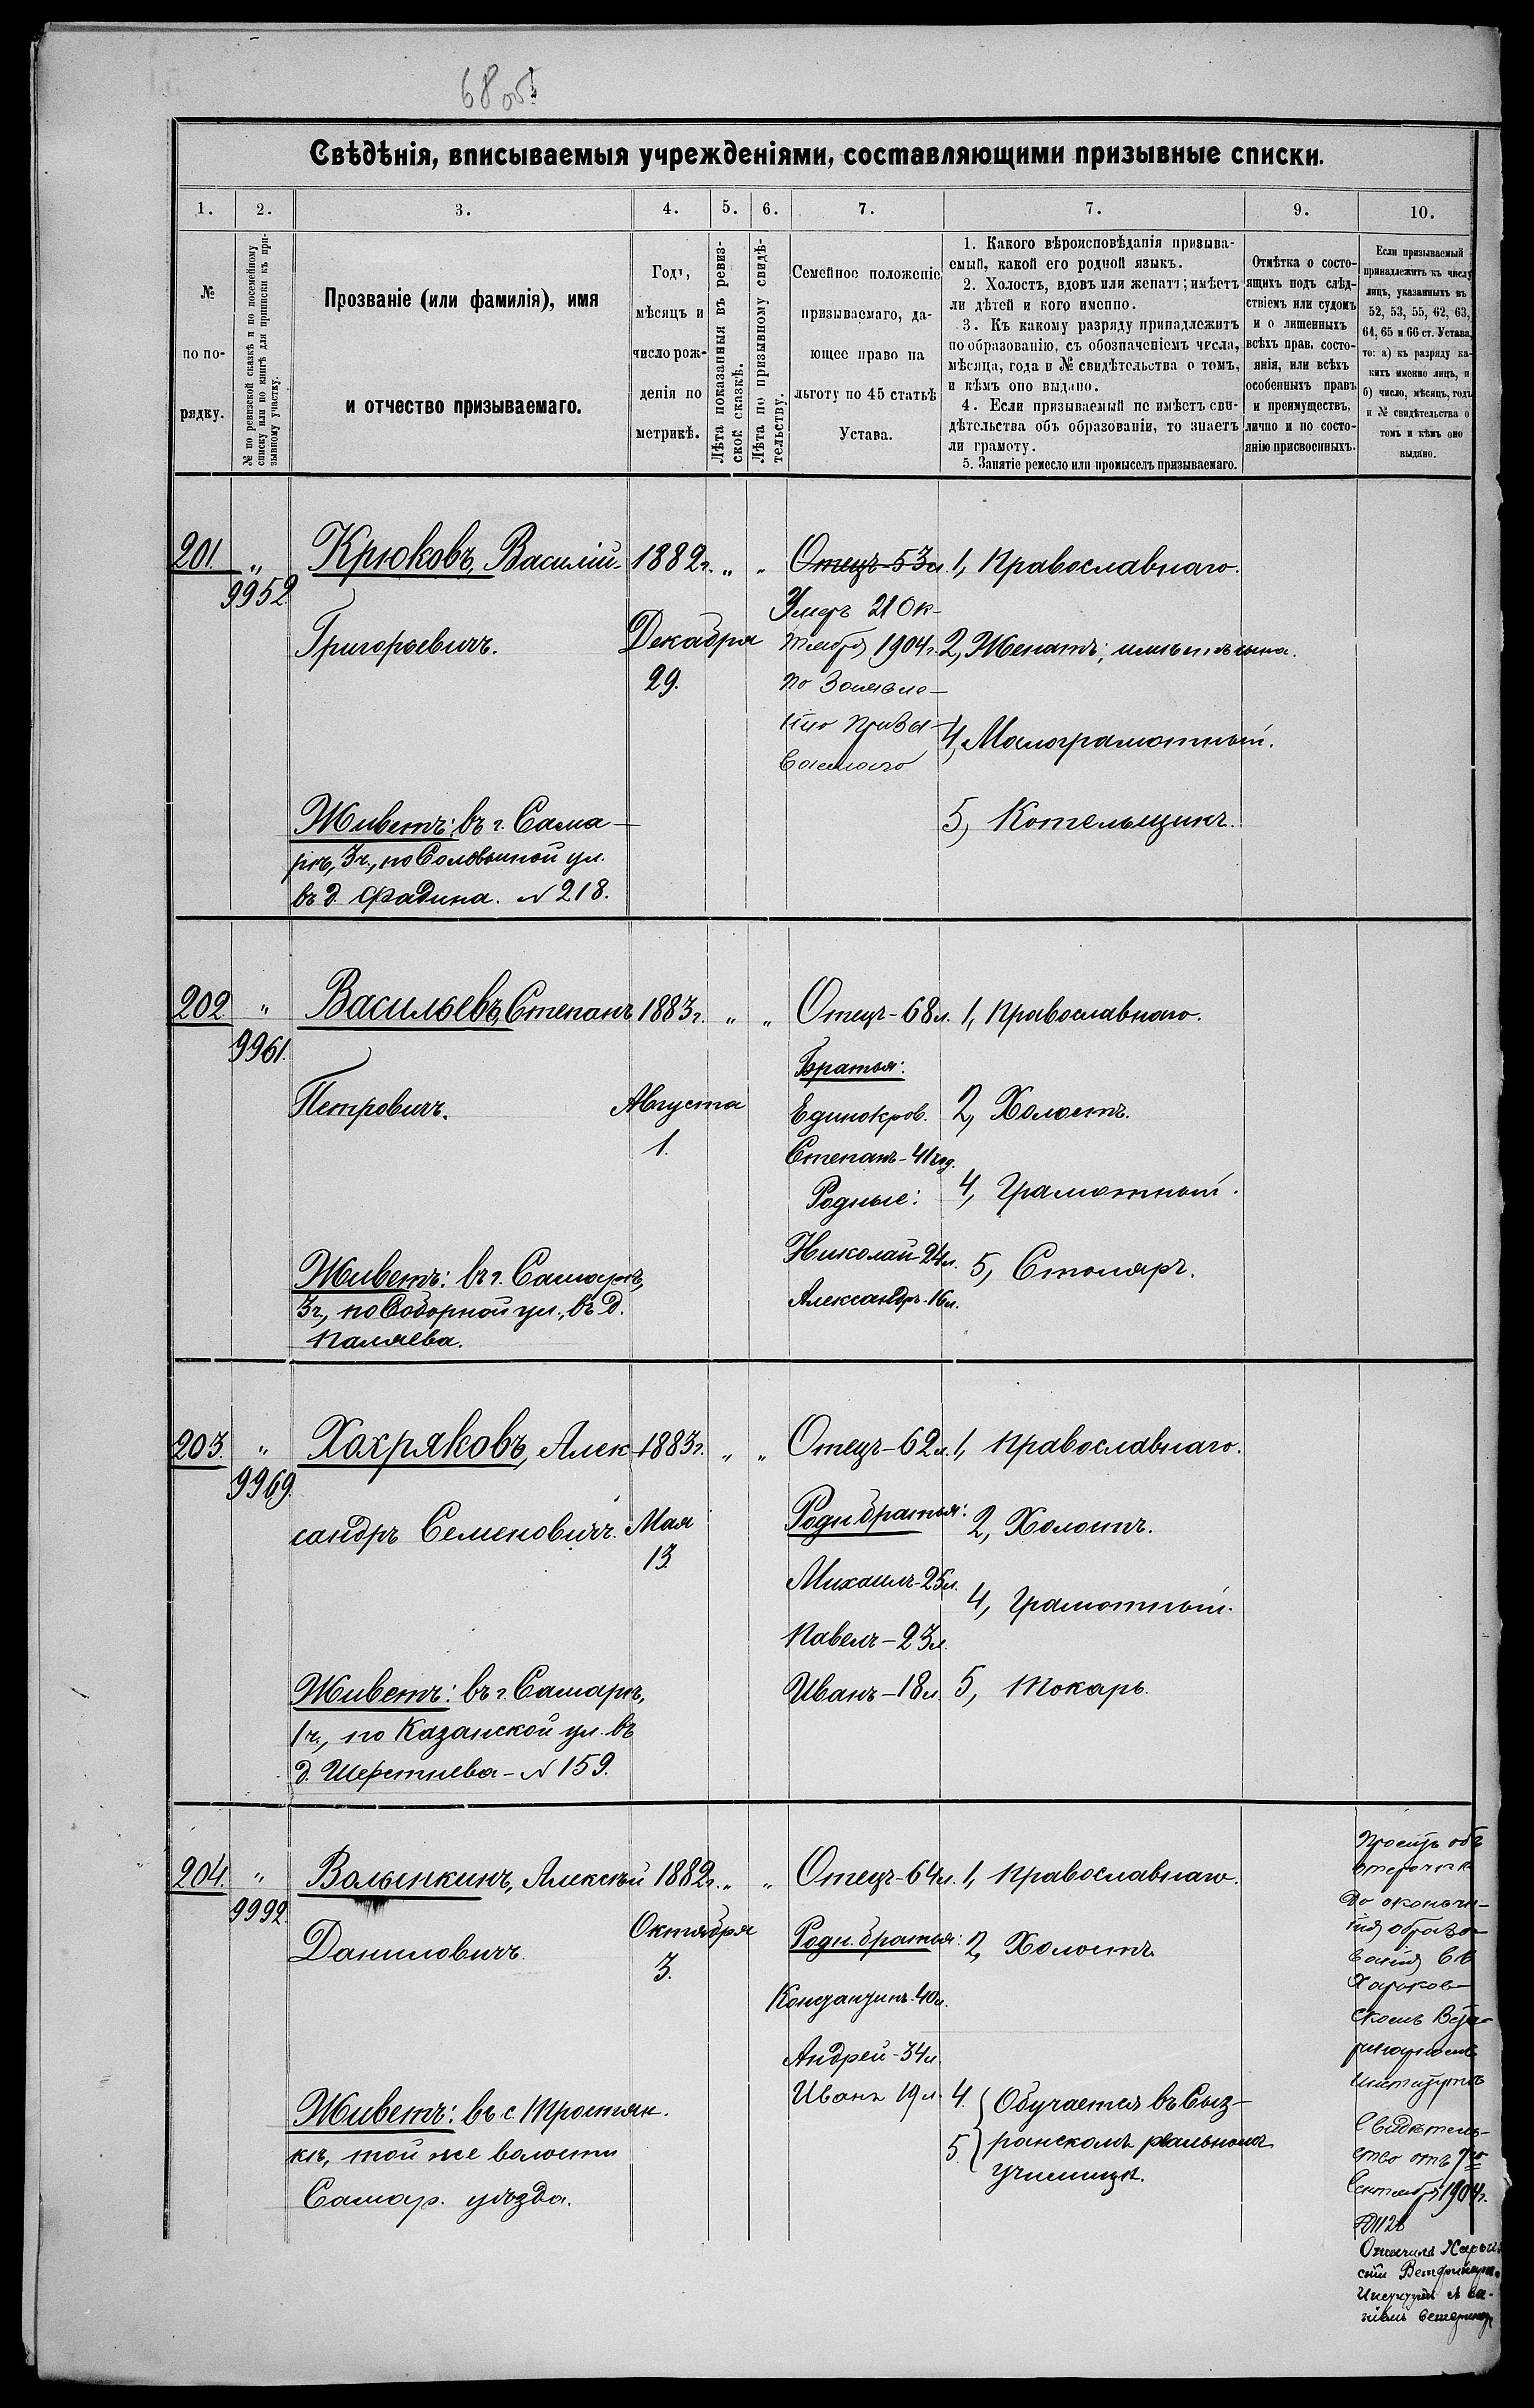 68 об
Свѣдѣнія, вписываемыя учрежденіями, составляющими призывные списки.
1. 2. 3. 4. 5. 6. 7. 7. 9. 10.
№
по по-
рядку.
№ по ревизской сказкѣ и по посемейному
списку или по книгѣ для приписки къ при-
зывному участку.
Прозваніе (или фамилія), имя
и отчество призываемаго.
Годъ,
мѣсяцъ и
число рож-
денія по
метрикѣ.
Лѣта показанныя въ ревиз-
ской сказкѣ.
Лѣта по призывному свидѣ-
тельству.
Семейное положеніе
призываемаго, да-
ющее право на
льготу по 45 статьѣ
Устава.
1. Какого вѣроисповѣданія призыва-
емый, какой его родной языкъ.
2. Холостъ, вдовъ или женатъ; имѣетъ
ли дѣтей и кого именно.
3. Къ какому разряду принадлежитъ
по образованію, съ обозначеніемъ числа,
мѣсяца, года и № свидѣтельства о томъ,
и кѣмъ оно выдано.
4. Если призываемый не имѣетъ сви-
дѣтельства объ образованіи, то знаетъ
ли грамоту.
5. Занятіе ремесло или промыселъ призываемаго.
Отмѣтка о состо-
ящихъ подъ слѣд-
ствіемъ или судомъ
и о лишенныхъ
всѣхъ прав. состо-
янія, или всѣхъ
особенныхъ правъ
и преимуществъ,
лично и по состо-
янію присвоенныхъ.
Если призываемый
принадлежитъ къ числу
лицъ, указанныхъ въ
52, 53, 55, 62, 63,
64, 65 и 66 ст. Устава,
то: а) къ разряду ка-
кихъ именно лицъ, и
б) число, мѣсяцъ, годъ
и № свидѣтельства о
томъ и кѣмъ оно
выдано.
201. " 9952.
Крюковъ, Василій
Григорьевичъ.
Живетъ: въ г. Сама-
рѣ, 3 ч., по Соловьиной ул.
въ д. Фадина. № 218.
1882 г. " "
Декабря
29.
Отецъ - 53 л.
Умеръ 21 Ок-
тября 1904 г.
по Заявле-
нію призы-
ваемаго
1, Православнаго.
2, Женатъ; имѣетъ сына.
4, Малограмотный.
5, Котельщикъ.
202 " 9961.
Васильевъ, Степанъ
Петровичъ.
Живетъ: въ г. Самарѣ,
3 ч., по Соборной ул., въ д.
Паляева.
1883 г. " "
Августа
1.
Отецъ - 68 л.
Братья:
Единокров.
Степанъ - 41 год.
Родные:
Николай - 24 л.
Александръ - 16 л.
1, Православнаго.
2, Холостъ.
4, Грамотный.
5, Столяръ.
203. " 9969.
Хохряковъ, Алек-
сандръ Семеновичъ.
Живетъ: въ г. Самарѣ,
1 ч., по Казанской ул. въ
д. Шерстнева - № 159.
1883 г. " "
Мая
13.
Отецъ - 62 л.
Родн. братья:
Михаилъ - 25 л.
Павелъ - 23 л.
Иванъ - 18 л.
1, Православнаго.
2, Холостъ.
4, Грамотный.
5, Токарь.
204. " 9992.
Волынкинъ, Алексѣй
Даниловичъ.
Живетъ: въ с. Тростян-
кѣ, той же волости
Самар. уѣзда.
1882 г. " "
Октября
3.
Отецъ - 64 л.
Родн. братья:
40 л.
Андрей - 34 л.
Иванъ 19 л.
1, Православнаго.
2, Холостъ.
4. 5. Обучается въ Сыз-
ранскомъ реальномъ
училищѣ.
Проситъ объ
отсрочкѣ
до оконча-
нія образо-
ванія въ
Харьков-
скомъ Вете-
ринарномъ
Институтѣ
Свидѣтель-
ство отъ 7го
Сентября 1904 г.
Окончилъ Харьк
скій Ветеринарн.